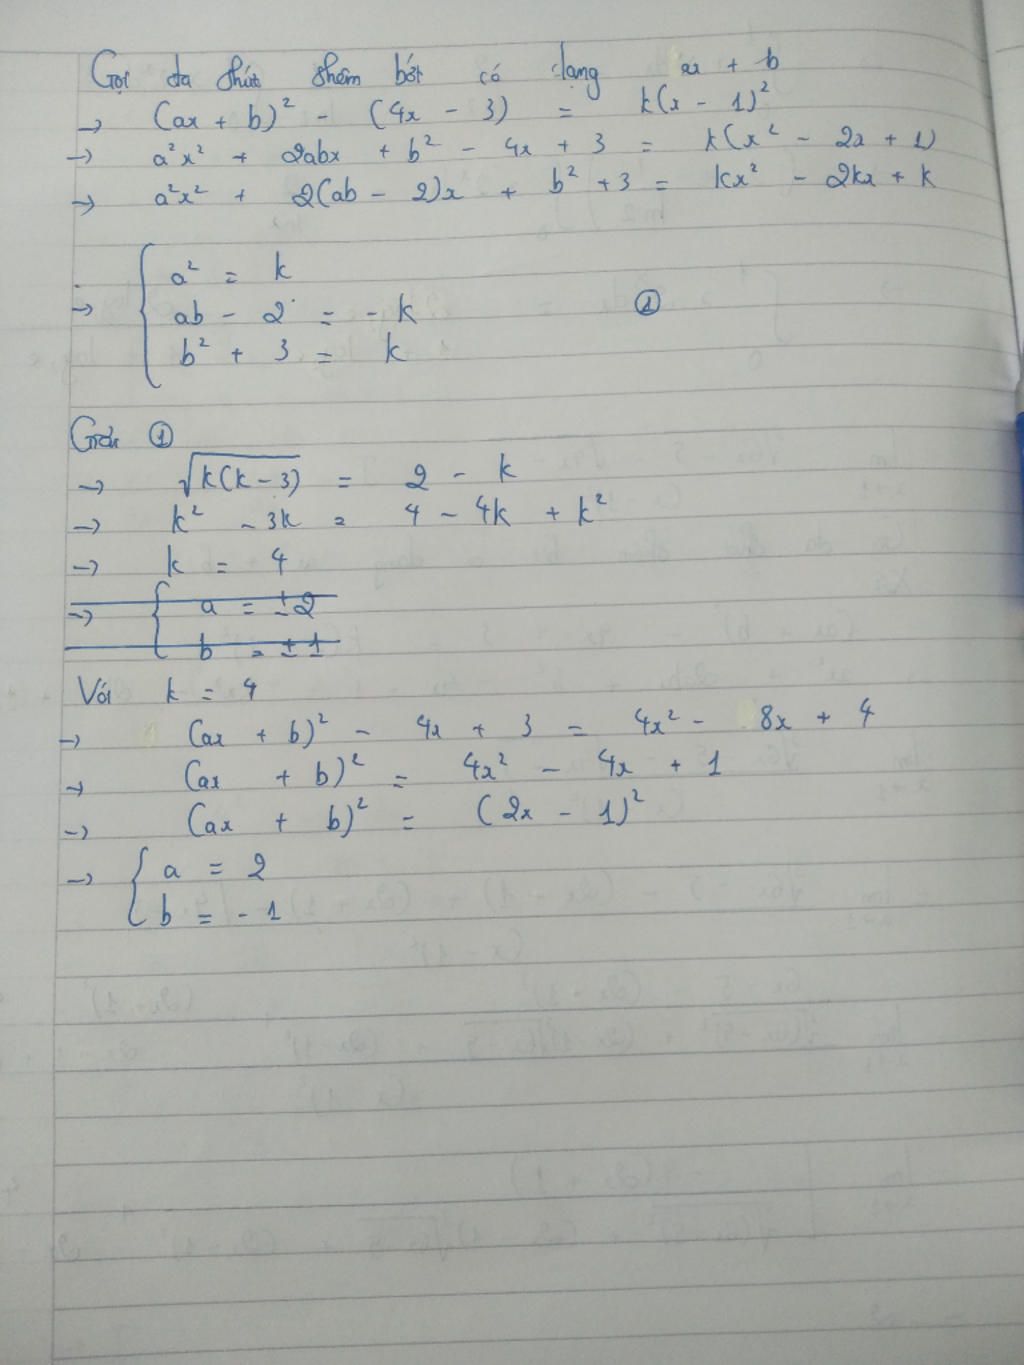 Gọi đa thức thêm bớt có dạng ax + b
→ (ax + b)² - (4x - 3) = k(x - 1)²
→ a²x² + 2abx + b² - 4x + 3 = k(x² - 2x + 1)
→ a²x² + 2(ab - 2)x + b² + 3 = kx² - 2kx + k
a² = k
→ { ab - 2 = -k ①
b² + 3 = k
Giải ①
→ √k(k - 3) = 2 - k
→ k² - 3k = 4 - 4k + k²
→ k = 4
→ { a = ±2
b = ±1
Với k = 4
→ (ax + b)² - 4x + 3 = 4x² - 8x + 4
→ (ax + b)² = 4x² - 4x + 1
→ (ax + b)² = (2x - 1)²
→ { a = 2
b = -1